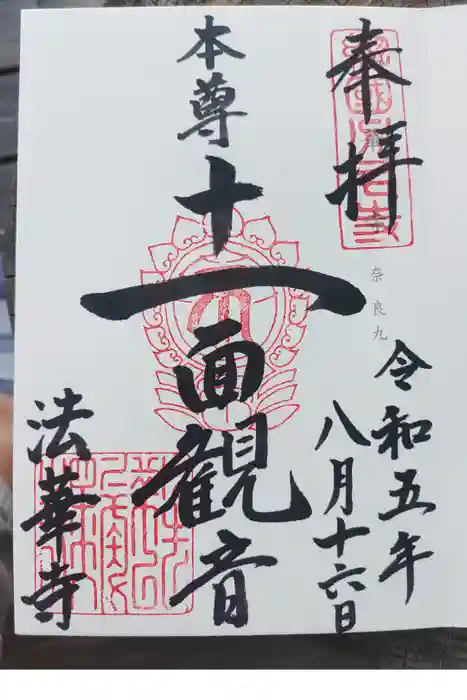 奉拝
奈良九
令和五年
八月十六日
本尊
十一面観音
法華寺